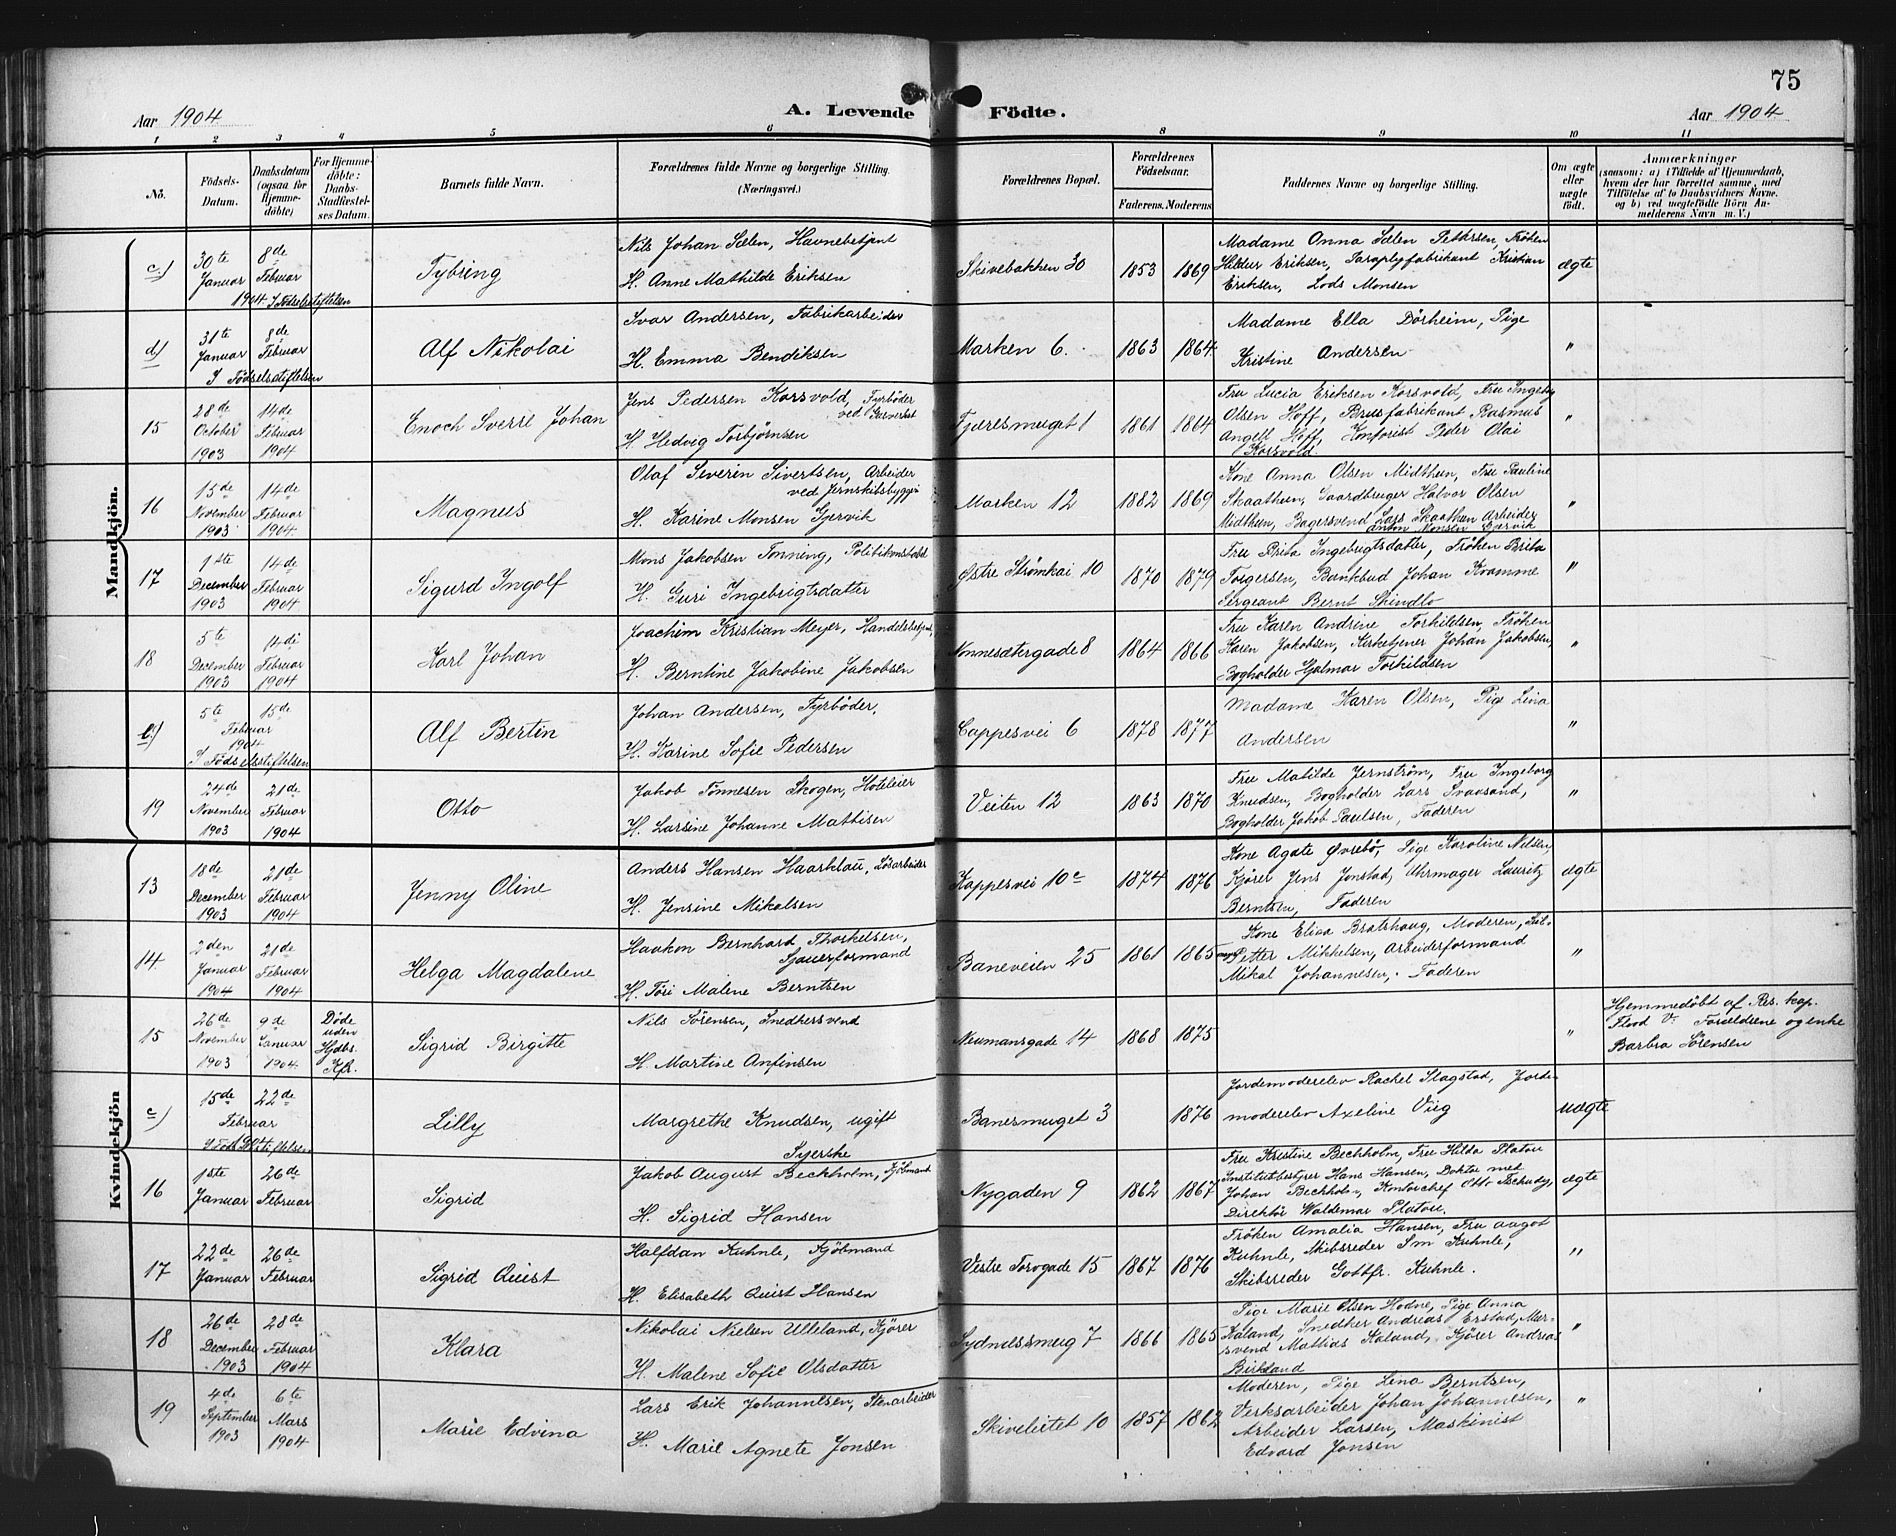 75
Aar 1904
A. Levende Födte.
Aar 1904
1 2 3 4 5 6 8 9 10 11
No.
Födsels-Datum.
Daabsdatum (ogsaa for Hjemme-döbte)
For Hjemme-döbte: Daabs-Stadfæstel-ses Datum.
Barnets fulde Navn.
Forældrenes fulde Navne og borgerlige Stilling. (Næringsvei.)
Forældrenes Bopæl.
Forældrenes Födselsaar.
Faderens. Moderens
Faddernes Navne og borgerlige Stilling.
Om ægte eller uægte födt.
Anmærkninger
(saasom: a) i Tilfælde af Hjemmedaab, hvem der har forrettet samme, med Tilföielse af to Daabsvidners Navne. og b) ved uægtefödte Börn An-melderens Navn m. V.)
Mandkjön.
c.) 30te Januar 8de Februar 1904 I Födselsstiftelsen
Tybring
Nils Johan Sælen, Havnebetjent
H. Anne Mathilde Eriksen
Skivebakken 30 1853 1869
Madame Anna Sælen Pettersen, Fröken
Hilder Eriksen, Paraplyfabrikant Kristian
Eriksen, Lods Monsen
ægte
d) 31te Januar 8de Februar
I Födselsstiftelsen
Alf Nikolai
Ivar Andersen, Fabrikarbeider
H. Emma Bendiksen
Marken 6. 1863 1864
Madame Ella Dörheim, Pige
Kristine Andersen
"
15 28de October 1903 14de Februar 1904
Enoch Sverre Johan
Jens Pedersen Korsvold, Fyrböder
ved Gasverket
H. Hedvig Torbjörnsen
Fjeresmuget 1 1861 1864
Fru Lucia Eriksen Korsvold, Fru Ingeborg
Olsen Hoff, Brusfabrikant Rasmus
Angell Hoff, Kontorist Peder Olai
Korsvold.
"
16 15de November 1903 14de Februar 1904
Magnus
Olaf Severin Sivertsen, Arbeider
ved Jernskibsbyggeri
H. Karine Monsen Gjervik
Marken 12 1882 1869
Kone Anna Olsen Midthun, Fru Pauline
Skaathun, Gaardbruger Halvor Olsen
Midthun, Bagersvend Lars Skaathun Arbeider
Anton Monsen Gjervik
"
17 1ste December 1903 14de Februar 1904
Sigurd Ingolf
Mons Jakobsen Tonning, Politikonstabel
H. Guri Ingebrigtsdatter
Østre Strømkai 10 1870 1879
Fru Brita Ingebrigtsdatter, Fröken Brita
Torgersen, Bankbud Johan Kvamme
Sergeant Bernt Skindlo
"
18 5te December 1903 14de Februar 1904
Karl Johan
Joachim Kristian Meyer, Handelsbetjent,
H. Berntine Jakobine Jakobsen
Nonnesætergade 8 1864 1866
Fru Karen Andrine Torkildsen, Fröken
Karen Jakobsen, Kirketjener Johan Jakobsen,
Bogholder Hjalmar Torkildsen
"
e.) 5te 15de Februar 1904
I Födselsstiftelsen
Alf Bertin
Johan Andersen, Fyrböder,
H. Karine Sofie Pedersen
Cappesvei 6 1878 1877
Madame Karen Olsen, Pige Lina
Andersen
"
19 24de November 1903 21de Februar 1904
Otto
Jakob Tönnesen Skogen, Hoteleier
H. Larsine Johanne Mathisen
Veiten 12 1863 1870
Fru Matilde Jernström, Fru Ingeborg
Knudsen, Bogholder Lars Svaasand,
Bogholder Jakob Paulsen, Faderen
"
Kvindekjön
13 18de December 1903 21de Februar 1904
Jenny Oline
Anders Hansen Haarklau, Lösarbeider
H. Jensine Mikalsen
Kappesvei 10c 1874 1876
Kone Agate Øvrebö, Pige Karoline Nilsen,
Kjörer Jens Jonstad, Uhrmager Lauritz
Berntsen, Faderen
ægte
14. 2den Januar 1904 21de Februar 1904
Helga Magdalene
Haakon Bernhard Thorkelsen,
Sjauerformand
H. Töri Malene Berntsen
Baneveien 25 1861 1865
Kone Elisa Bratshaug, Moderen,
Petter Mikkelsen, Arbeiderformand
Mikal Johannesen, Faderen
"
15 26de November 1903 9de Januar 1904
Döde uden Hjdbs. Kfr.
Sigrid Birgitte
Nils Sörensen, Snedkersvend
H. Martine Anfinsen
Neumansgade 14 1868 1875
"
Hjemmedöbt af Res. kap.
Flood V. Forældrene og enke
Barbra Sörensen
c) 15de 22de Februar
I Födselsstiftelsen
Lilly
Margrethe Knudsen, ugift
Syerske
Banesmuget 3 1876
Jordemoderelev Rachel Slagstad, Jorde-
moderelev Axeline Viig
uægte
16 1ste Januar 26de Februar
Sigrid
Jakob August Beckholm, Kjöbmand
H. Sigrid Hansen
Nygaden 9 1862 1867
Fru Kristine Bechholm, Fru Hilda Platou
Institutbestyrer Hans Hansen, Doktor med
Johan Bechholm, Kontorchef Otto Tschudy,
Direktör Waldemar Platou.
ægte
17 22de Januar 26de Februar
Sigrid Quist
Halfdan Kuhnle, Kjöbmand
H. Elisabeth Quist Hansen
Vestre Torvgade 15 1867 1876
Fröken Amalia Hansen, Fru Aagot
Kuhnle, Skibsreder Sm Kuhnle,
Skibsreder Gottfr. Kuhnle.
"
18 26de December 1903 28de Februar 1904
Klara
Nikolai Nielsen Ulleland, Kjörer
H. Malene Sofie Olsdatter
Sydnessmug 7 1866 1865
Pige Marie Olsen Hodne, Pige Anna
Kaland, Snedker Andreas Erstad, Mur-
svend Mathias Kaland, Kjörer Andreas
Birkland
"
19 4de September 1903 6te Mars 1904
Marie Edvina
Lars Erik Johannesen, Stenarbeider
H. Marie Agnete Jonsen
Skiveleitet 10 1857 1862
Moderen, Pige Lina Berntsen,
Verksarbeider Johan Johannesen,
Arbeider Larsen, Maskinist
Edvard Jonsen
"